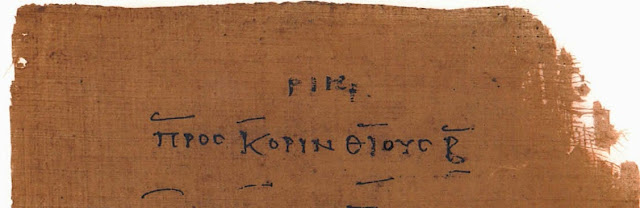 ΡΙΗ
ΠΡΟϹ ΚΟΡΙΝΘΙΟΥϹ Β